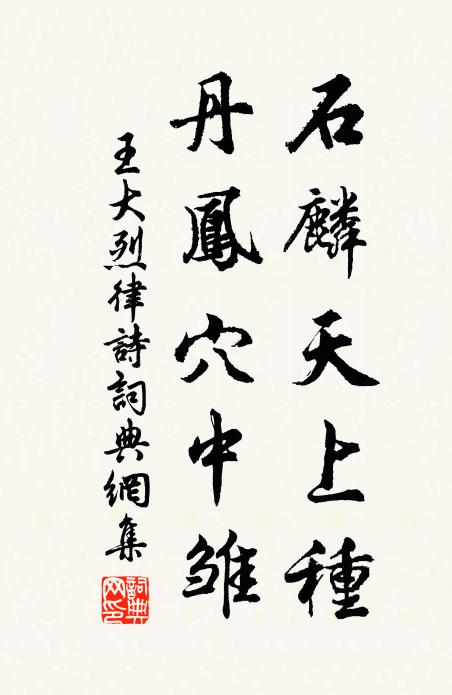 石麟天上種
丹鳳穴中雏
王大烈律詩詞典網集
詞典網印